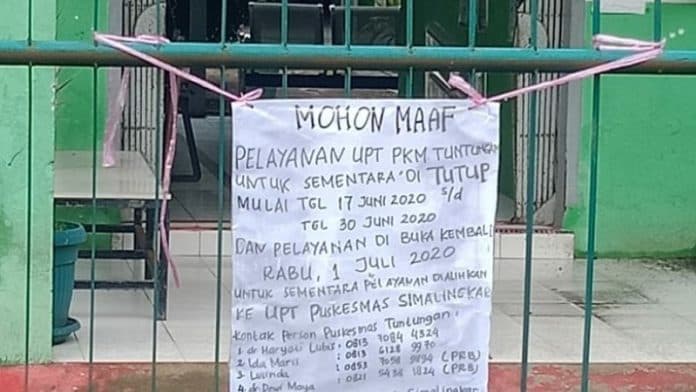 MOHON MAAF
PELAYANAN UPT PKM TUNTUNGAN
UNTUK SEMENTARA DI TUTUP
MULAI TGL 17 JUNI 2020 s/d
TGL 30 JUNI 2020
DAN PELAYANAN DI BUKA KEMBALI
RABU, 1 JULI 2020
UNTUK SEMENTARA PELAYANAN DIALIHKAN
KE UPT PUSKESMAS SIMALINGKAR
Kontak Person Puskesmas Tuntungan :
1. dr Haryati Lubis : 0813 7084 4324
2. Ida Maris : 0813 6128 9970
3. Lucinda : 0853 7058 9894 (PRB)
: 0821 5438 1824 (PRB)
4. dr Dewi Maya
Simalingkar